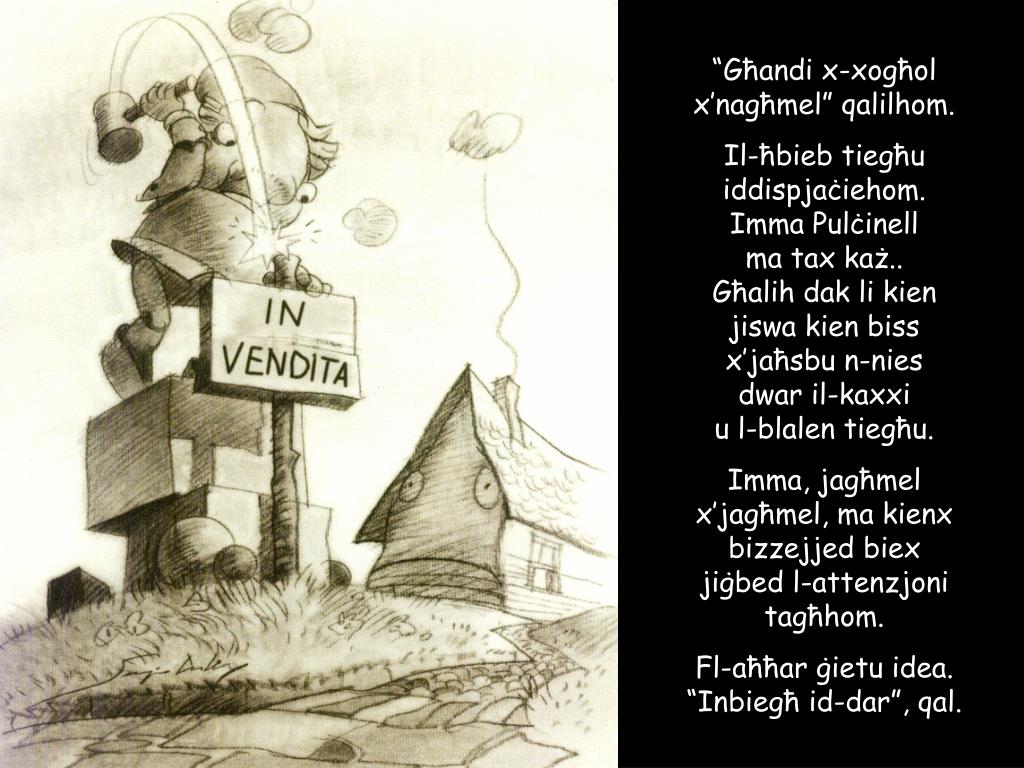 IN
VENDITA
“Għandi x-xogħol
x’nagħmel” qalilhom.
Il-ħbieb tiegħu
iddispjaċiehom.
Imma Pulċinell
ma tax każ..
Għalih dak li kien
jiswa kien biss
x’jaħsbu n-nies
dwar il-kaxxi
u l-blalen tiegħu.
Imma, jagħmel
x’jagħmel, ma kienx
bizzejjed biex
jiġbed l-attenzjoni
tagħhom.
Fl-aħħar ġietu idea.
“Inbiegħ id-dar”, qal.